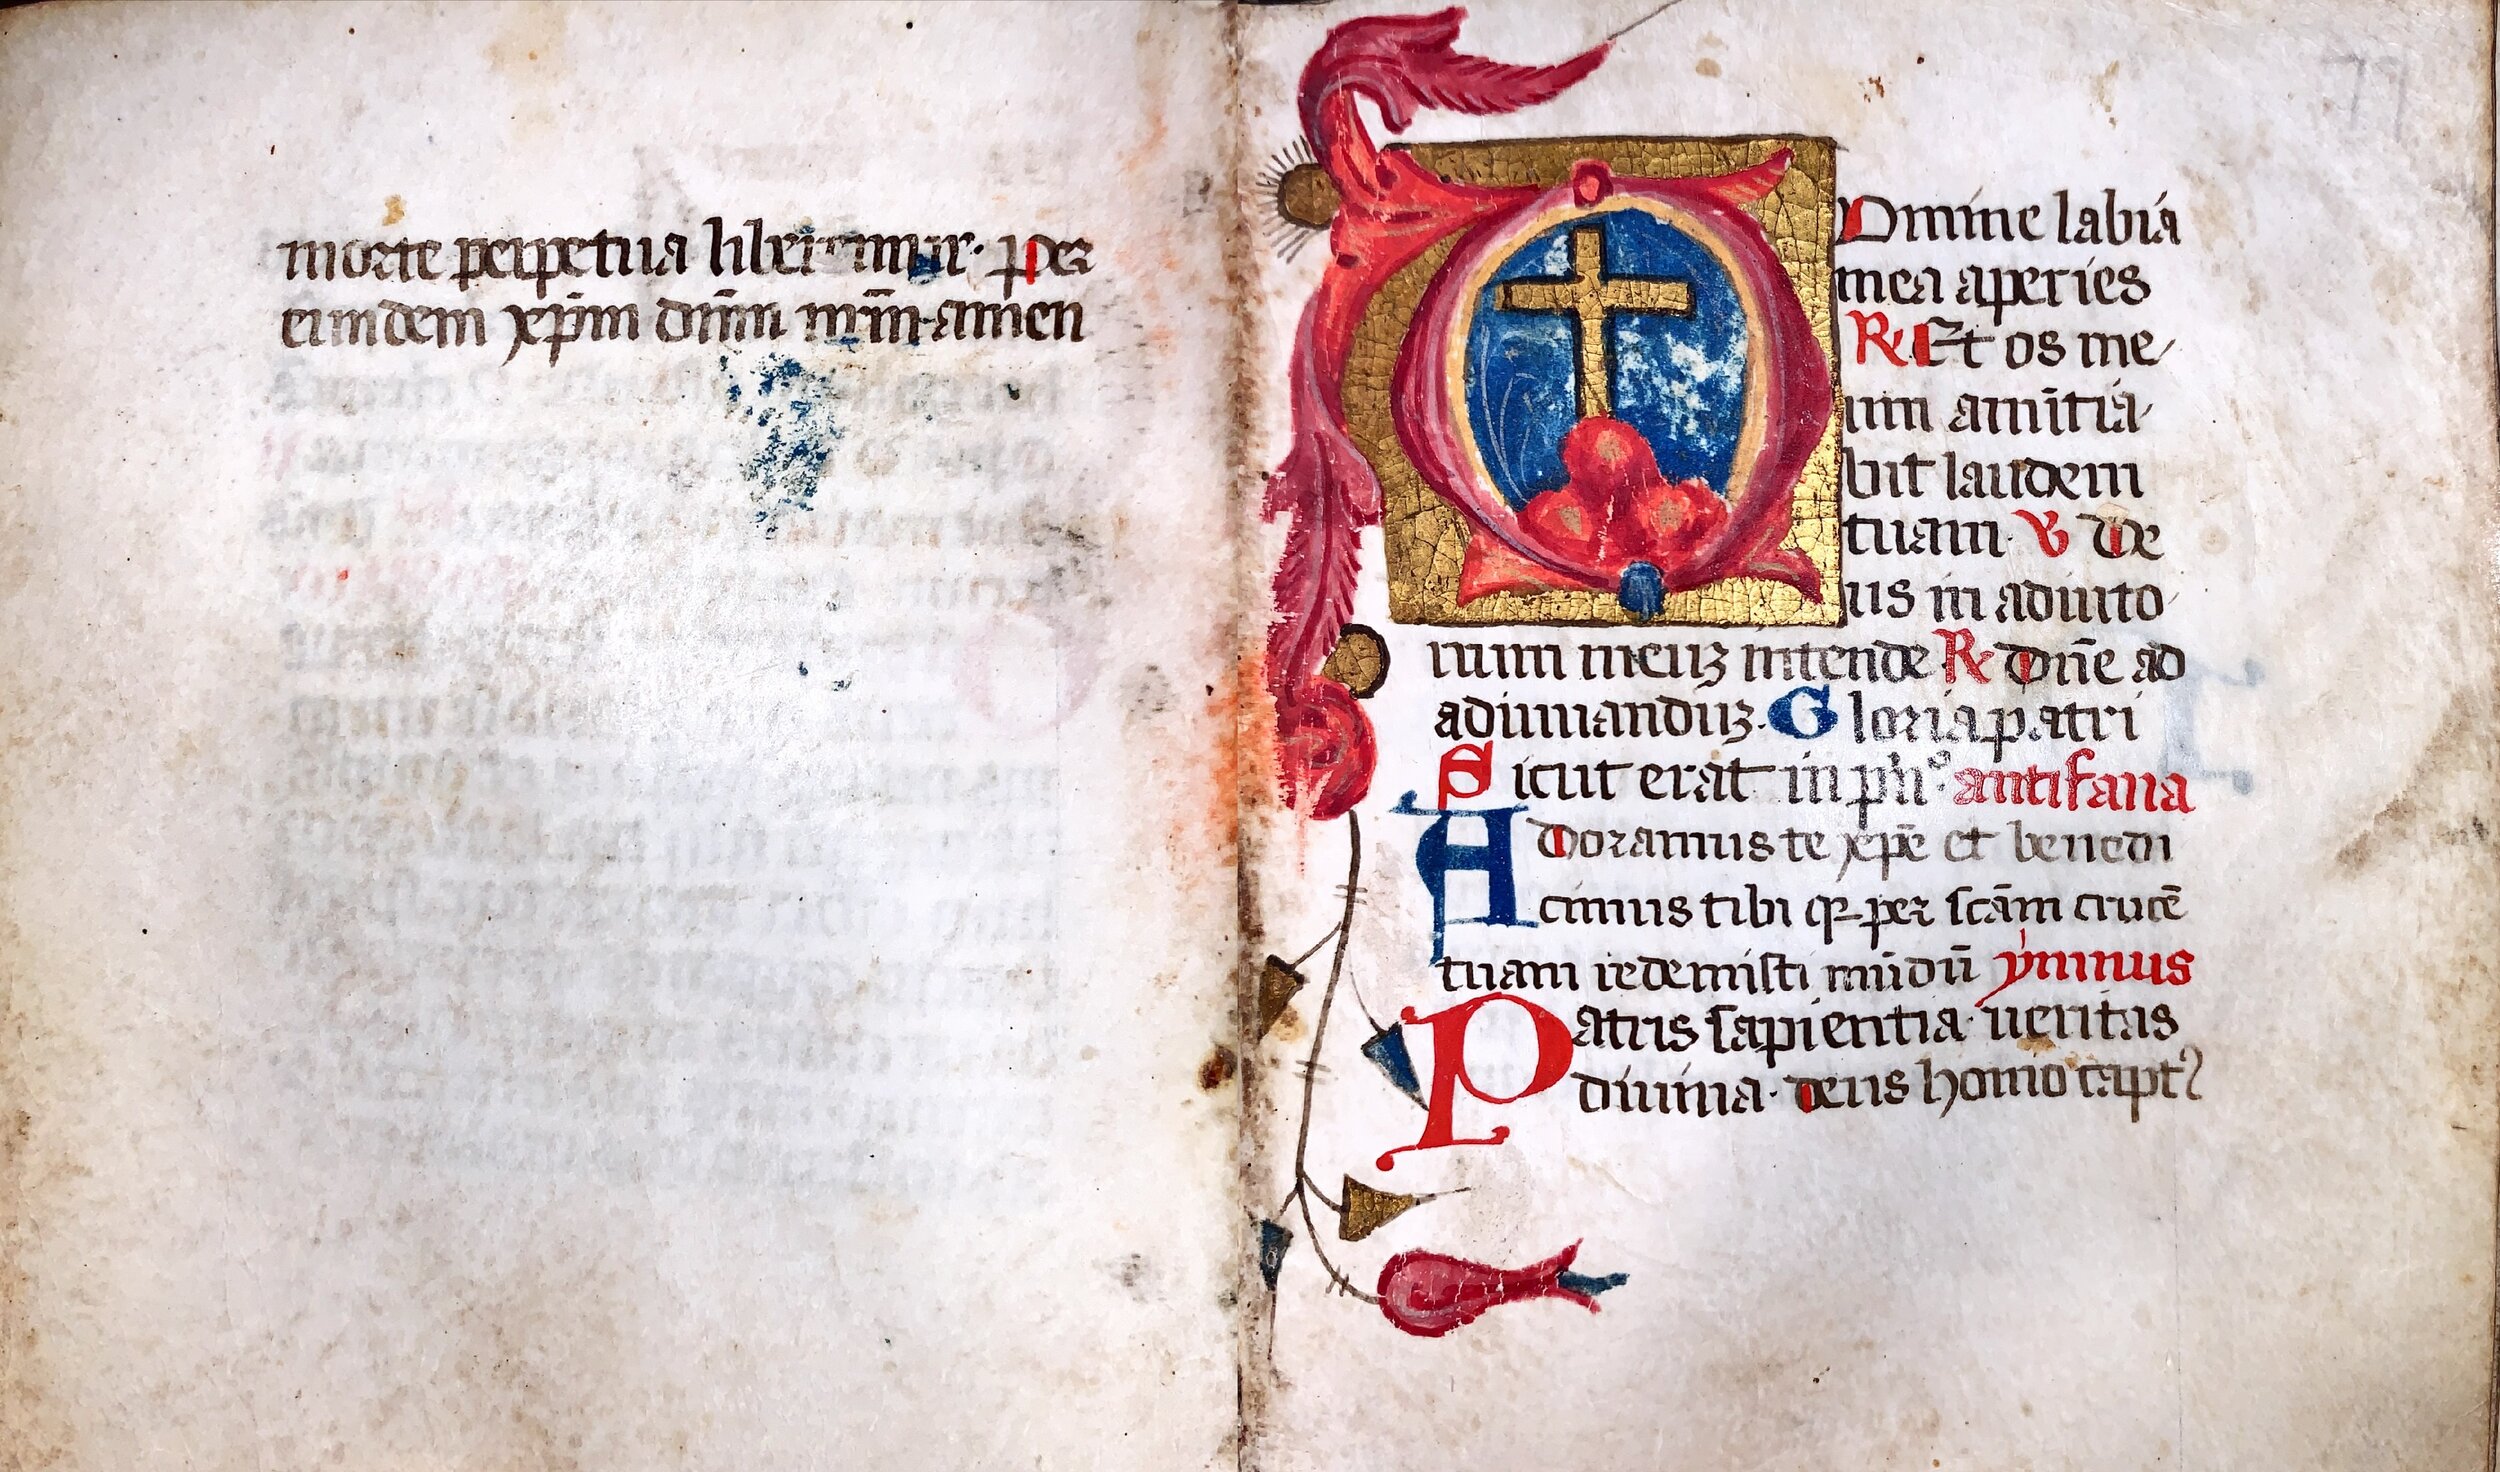 morte perpetua liberemur. per
eundem xp̄m dn̄m nr̄m. amen
Domine labia
mea aperies
R Et os me
um anūtia
bit laudem
tuam. V De
us in adiuto
rium meuꝫ intende R Dn̄e ad
adiuuanduꝫ. Gloria patri
Sicut erat in pn̄. antifana
Adoramus te xp̄e et benedi
cimus tibi qꝛ per scām crucē
tuam redemisti mūdū ymnus
Patris sapientia. ueritas
diuina. deus homo captꝰ